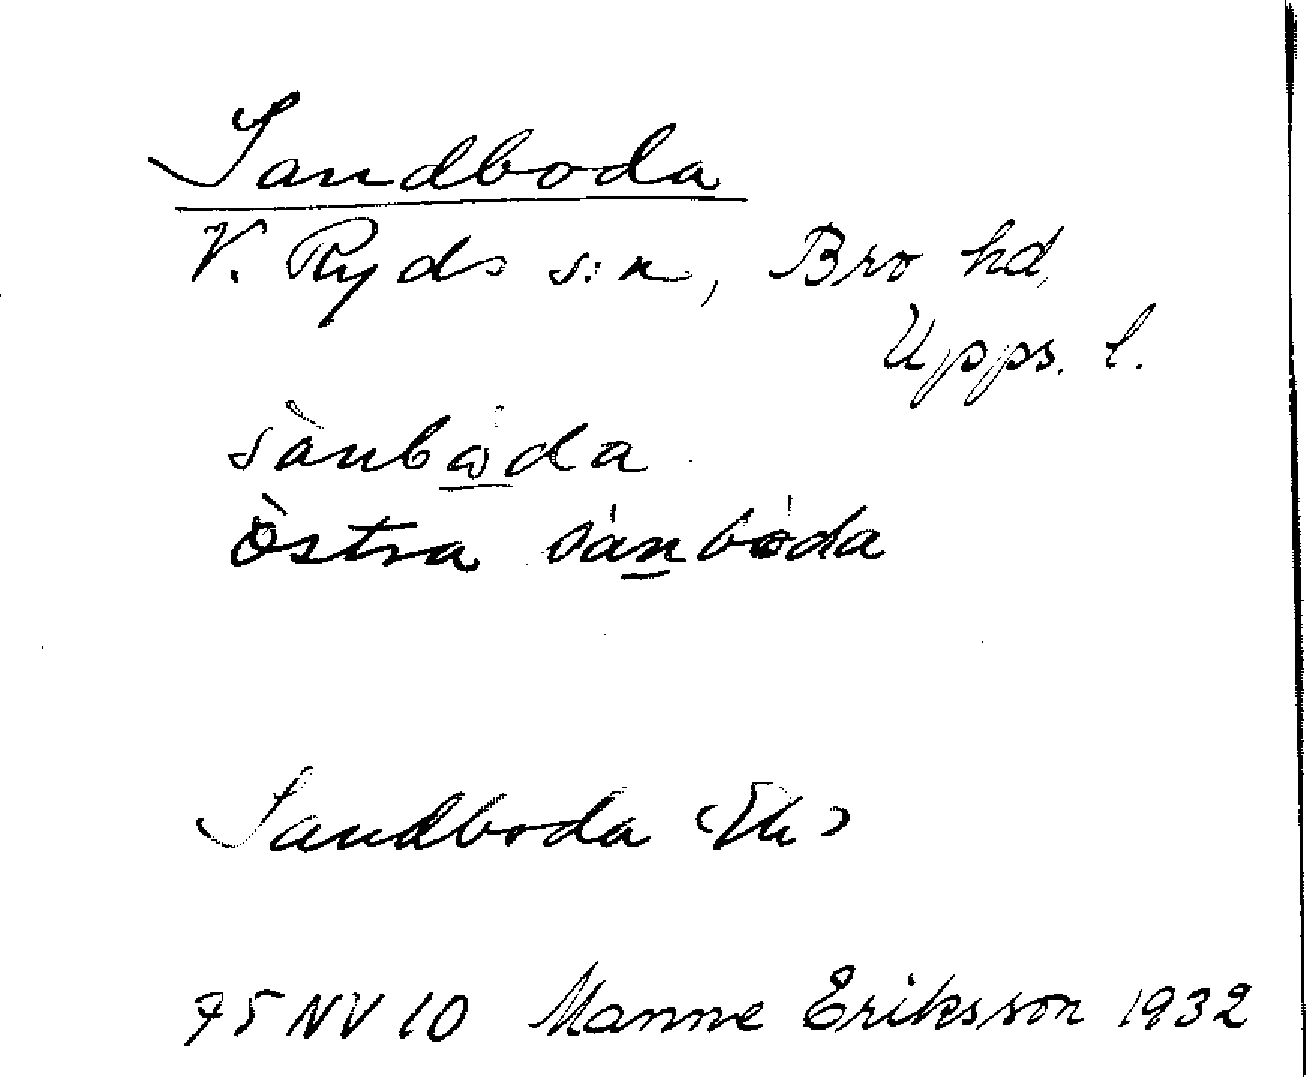 Sandboda
V. Ryds s:n, Bro hd,
Upps. l.
sànbω̇da
Östra sánbòda
Sandboda (Ek)
75 NV 10 Manne Eriksson 1932